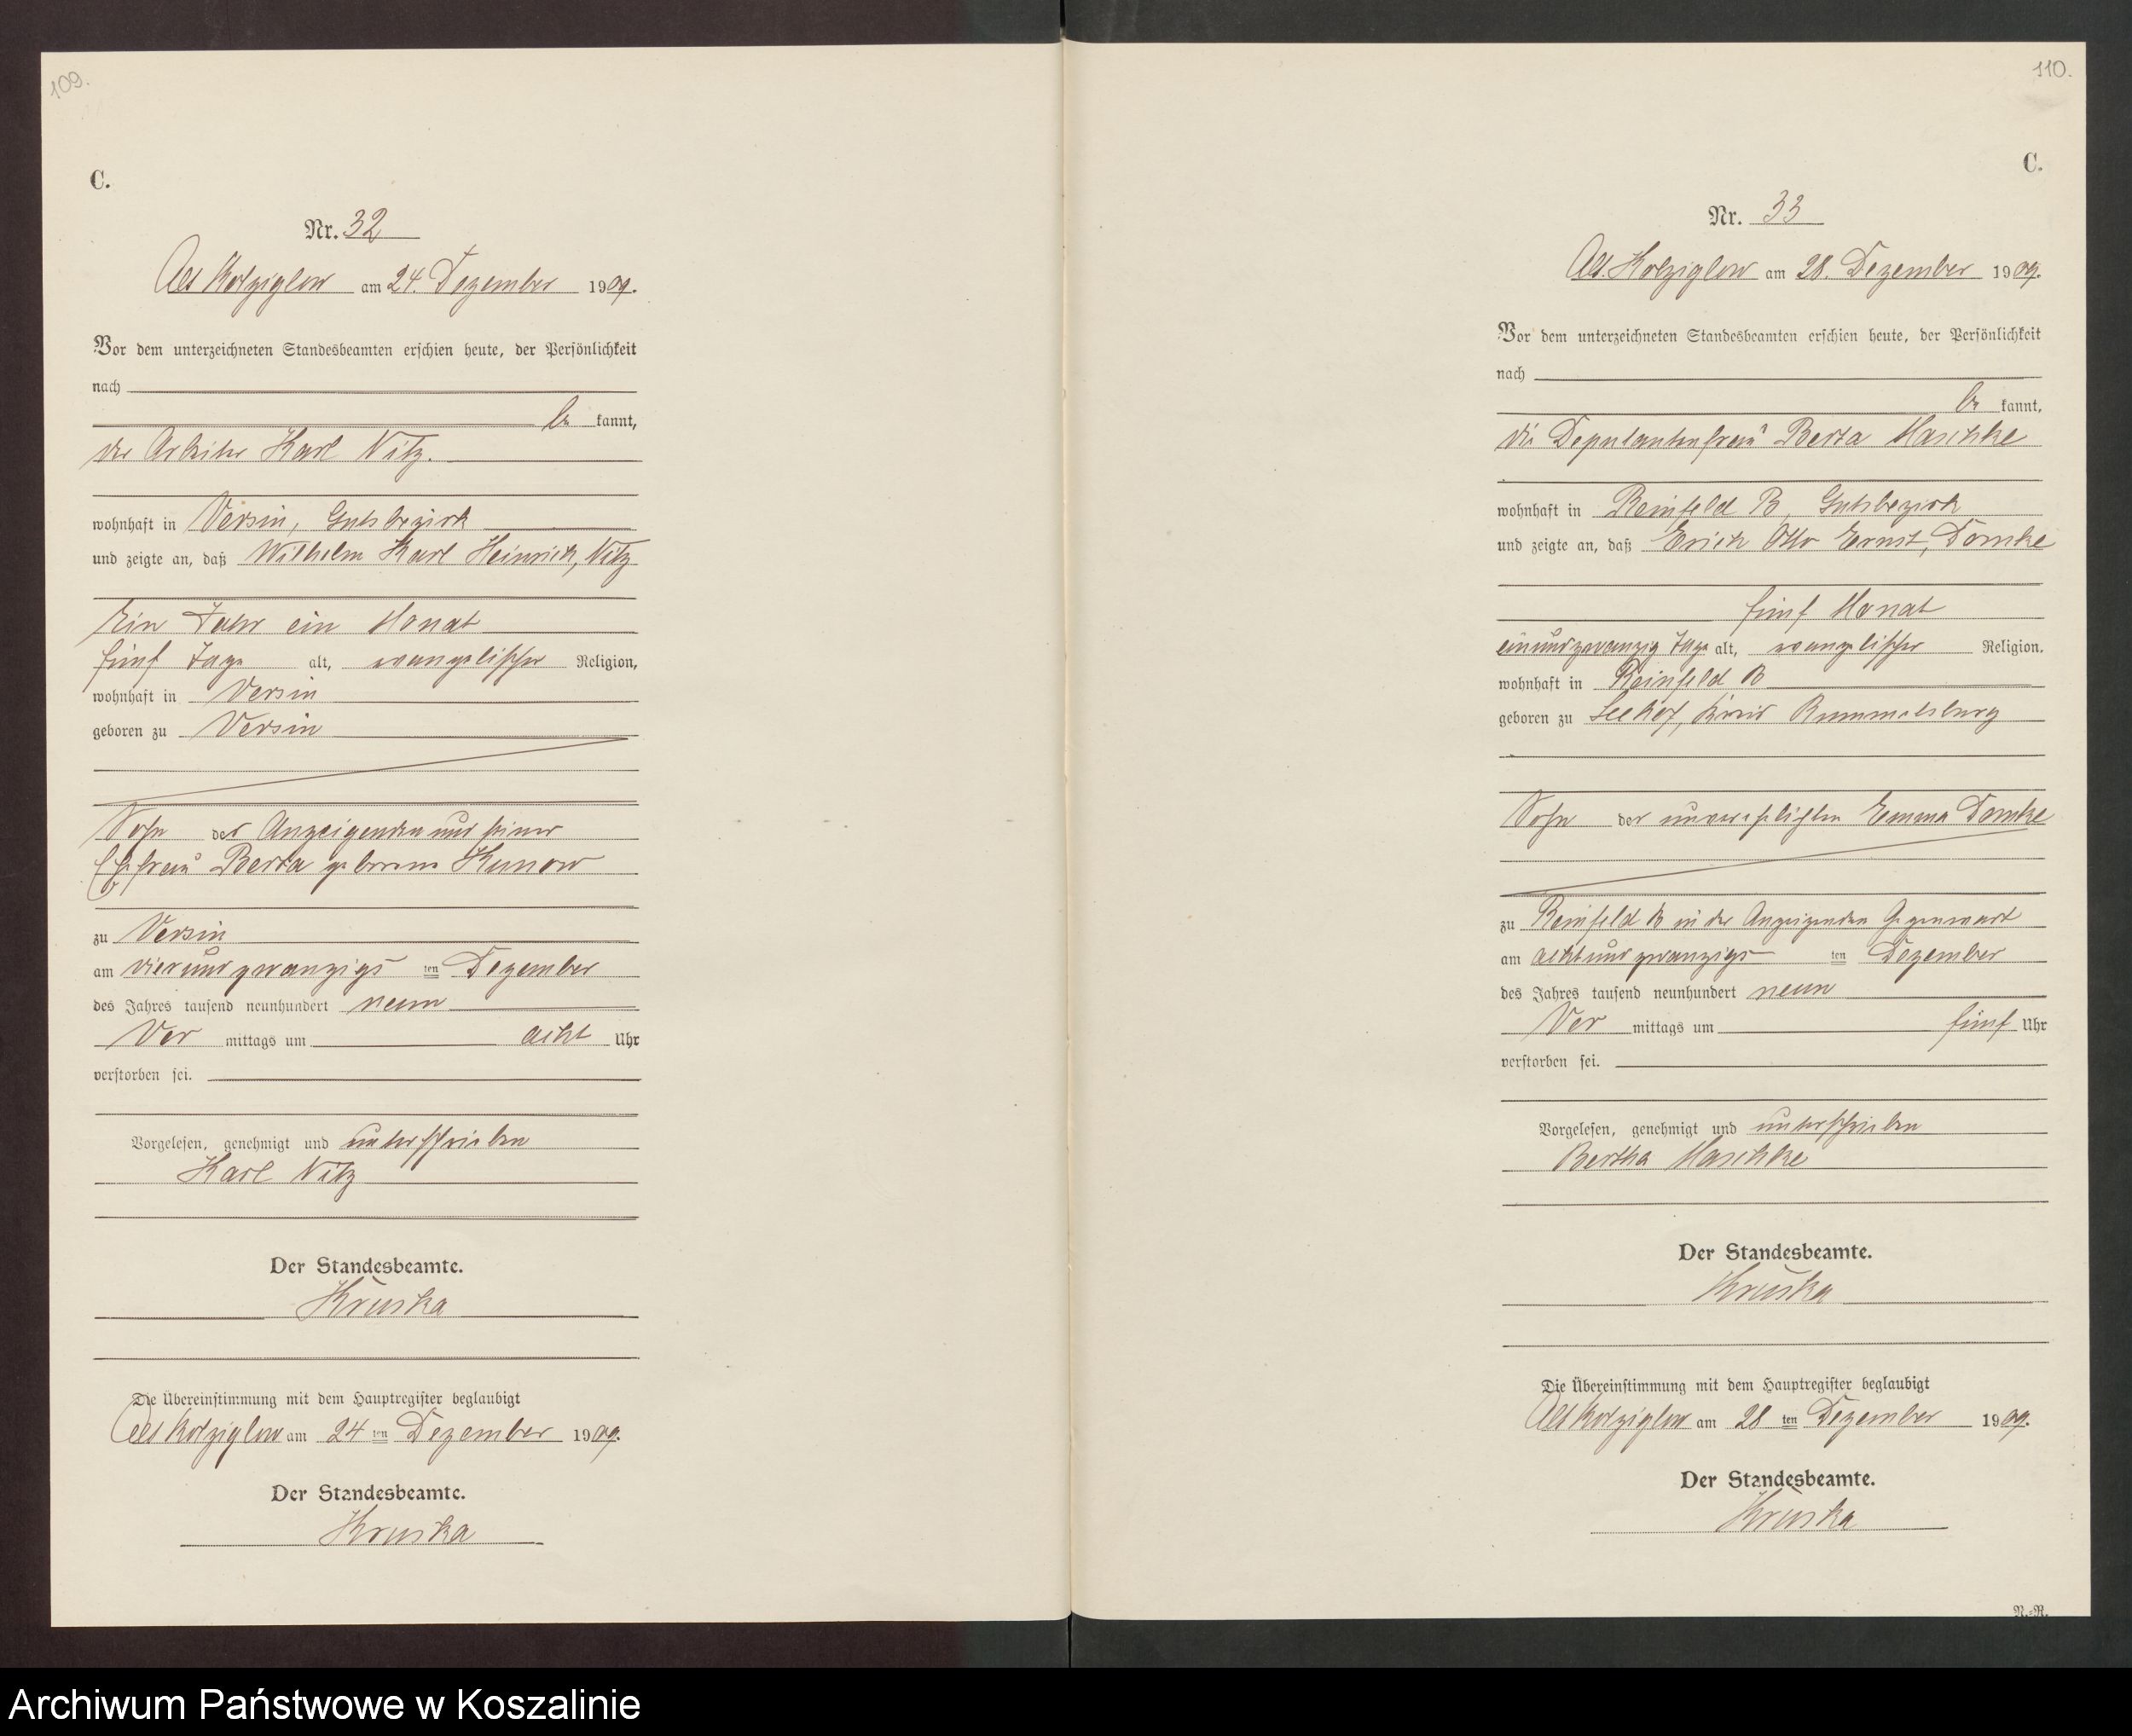 109.
C.
Nr. 32
Alt Kolziglow am 24. Dezember 1909.
Vor dem unterzeichneten Standesbeamten erschien heute, der Persönlichkeit
nach
be kannt,
der Arbeiter Karl Nitz.
wohnhaft in Versin, Gutsbezirk
und zeigte an, daß Wilhelm Karl Heinrich, Nitz
Ein Jahr ein Monat
fünf Tage alt, evangelischer Religion,
wohnhaft in Versin
geboren zu Versin
Sohn des Anzeigenden und seiner
Ehefrau Berta geborene Kunow
zu Versin
am vierundzwanzigs ten Dezember
des Jahres tausend neunhundert neun
Vor mittags um acht Uhr
verstorben sei.
Vorgelesen, genehmigt und unterschrieben
Karl Nitz
Der Standesbeamte.
Kruska
Die Übereinstimmung mit dem Hauptregister beglaubigt
Alt Kolziglow am 24 ten Dezember 1909.
Der Standesbeamte.
Kruska
110.
C.
Nr. 33
Alt. Kolziglow am 28. Dezember 1909.
Vor dem unterzeichneten Standesbeamten erschien heute, der Persönlichkeit
nach
be kannt,
die Deputantenfrau Berta Maschke
wohnhaft in Reinfeld B, Gutsbezirk
und zeigte an, daß Erich Otto Ernst, Domke
fünf Monat
einundzwanzig Tage alt, evangelischer Religion.
wohnhaft in Reinfeld B
geboren zu Seehof, Kreis Rummelsburg
Sohn der unverehelichten Emma Domke
zu Reinfeld B in der Anzeigenden Gegenwart
am achtundzwanzigs ten Dezember
des Jahres tausend neunhundert neun
Vor mittags um fünf Uhr
verstorben sei.
Vorgelesen, genehmigt und unterschrieben
Bertha Maschke
Der Standesbeamte.
Kruska
Die Übereinstimmung mit dem Hauptregister beglaubigt
Alt Kolziglow am 28 ten Dezember 1909.
Der Standesbeamte.
Kruska
N.-R.
Archiwum Państwowe w Koszalinie